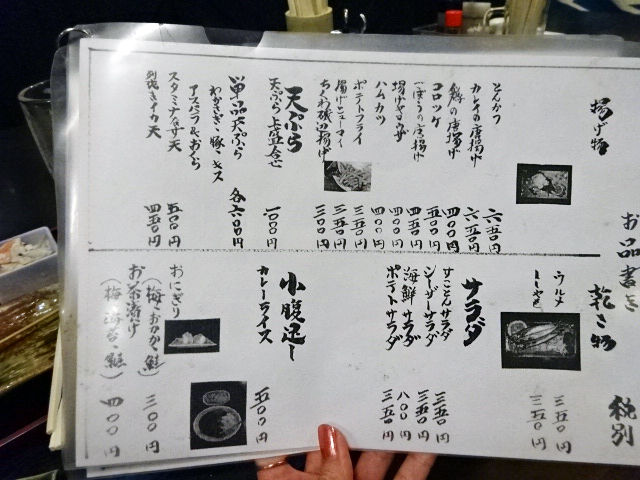 お品書き
税別
揚げ物
とんかつ 六五〇円
カレイの唐揚げ 六五〇円
鱗の唐揚げ 四〇〇円
コロッケ 五〇〇円
ごぼうの唐揚げ 四五〇円
揚げギョウザ 四〇〇円
ハムカツ 四〇〇円
ポテトフライ 三五〇円
揚げシューマイ 三五〇円
ちくわ磯辺揚げ 三〇〇円
天ぷら
天ぷら盛合せ
単品天ぷら 各六〇〇円
わかさぎ・豚・キス
アスパラ&おくら
スタミナなす天 五〇〇円
裂きイカ天 四五〇円
乾き物
三五〇円
三五〇円
サラダ
すことんサラダ 三五〇円
シーザーサラダ 三五〇円
海鮮サラダ 八〇〇円
ポテトサラダ 三五〇円
小腹足し
カレーライス 五〇〇円
おにぎり
(梅・おかか・鮭) 三〇〇円
お茶漬け
(梅・海苔・鮭) 四〇〇円